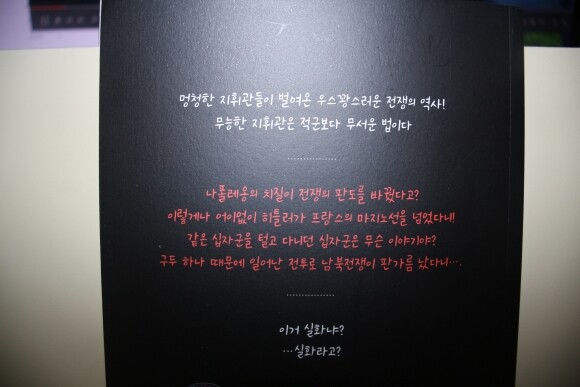 멍청한 지휘관들이 벌여온 우스꽝스러운 전쟁의 역사!
무능한 지휘관은 적군보다 무서운 법이다
나폴레옹의 치질이 전쟁의 판도를 바꿨다고?
이렇게나 어이없이 히틀러가 프랑스의 마지노선을 넘었다니!
같은 십자군을 털고 다니던 십자군은 무슨 이야기야?
구두 하나 때문에 일어난 전투로 남북전쟁이 판가름 났다니….
이거 실화냐?
…실화라고?